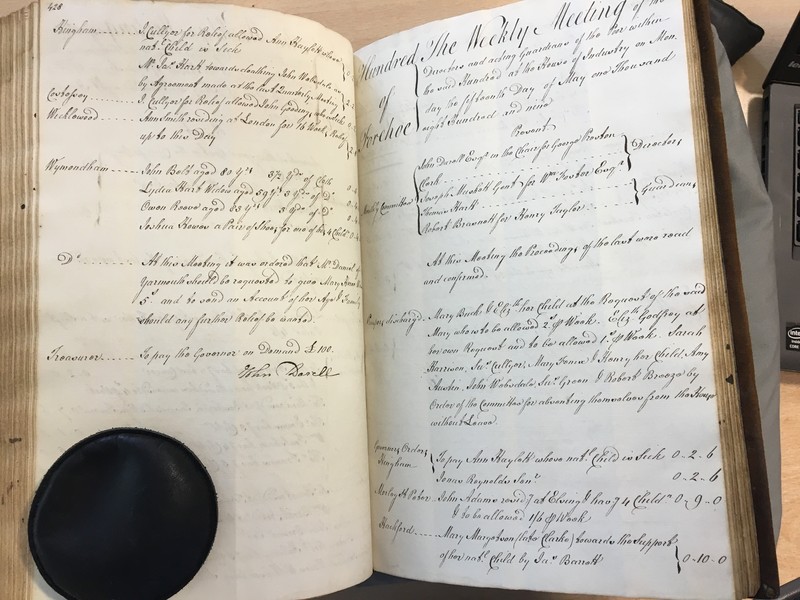 428
Hingham J. Cullyer for Relief allowed Ann Haylett whose
nat.l Child is Sick
Mr. Jas. Hart towards cloathing John Wabisdale
by Agreement made at the last Quarterly Meeting
Costessey J. Cullyer for Relief allowed John Gooding
Wicklewood Ann Smith residing at London for 16 Weeks Relief
up to this Day
Wymondham John Bolt aged 80 yrs 3½ yds of Cloth
Lydia Hart Widow aged 59 yrs 3 yds of Do
Owen Reeve aged 83 yrs 3 yds of Do
Joshua Howes a Pair of Shoes for one of his 4 Childn
Do At this Meeting it was ordered that Mr. Daniel of
Yarmouth should be requested to give Mary
5s and to send an Account of her Age &
should any further Relief be wanted
Treasurer To pay the Governor on Demand £100.
John Darell
Hundred The Weekly Meeting of the
of Directors and acting Guardians of the Poor within
Forehoe the said Hundred at the House of Industry on Mon
day the fifteenth Day of May one Thousand
eight Hundred and nine
Present
John Darell Esqr. in the Chair for George Preston
Clerk Directors
Weekly Committee Joseph Muskett Gent for Wm. Foster Esqr.
Thomas Hart Guardians
Robert Brownett for Henry Taylor
At this Meeting the Proceedings of the last were read
and confirmed.
Paupers discharged Mary Buck & Elizth her Child at the Request of the said
Mary who is to be allowed 2s. ⅌ Week. Elizth Godfrey at
her own Request and to be allowed 1s. ⅌ Week. Sarah
Harrison, Jas. Cullyer, Mary Jones & Henry her Child, Amy
Austin, John Wabisdale, Jas. Green & Robert Breeze by
Order of the Committee for absenting themselves from the House
without Leave.
Governors Orders
Hingham To pay Ann Haylett whose nat.l Child is Sick 0-2-6
James Reynolds Senr. 0-2-6
Morley St Peter John Adams resid.g at Elsing & hav.g 4 Childn 0-9-0
& to be allowed 1/6 ⅌ Week
Hackford Mary Margetson (late Clarke) towards the Support
of her nat.l Child by Jas. Barrett 0-10-0
intel